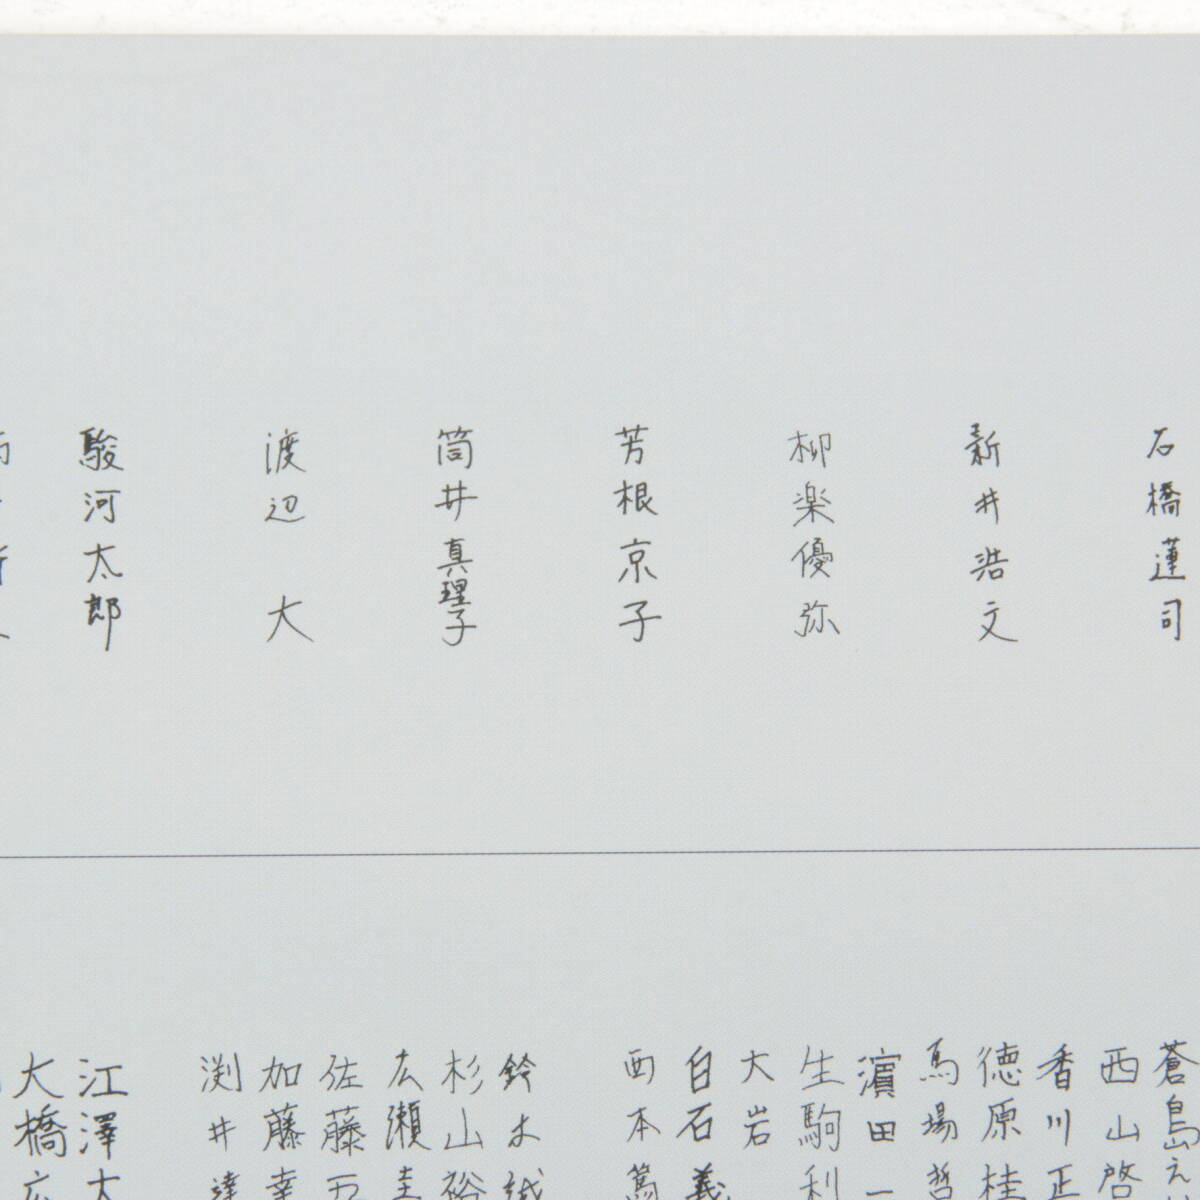 石橋蓮司
新井浩文
柳楽優弥
芳根京子
筒井真理子
渡辺大
駿河太郎
蒼島え
西山啓
香川正
徳原桂
馬場哲
濵田一
生駒利
大岩
白石義
西本篤
鈴木誠
杉山裕
広瀬圭
佐藤五
加藤幸
渕井達
江澤大
大橋広